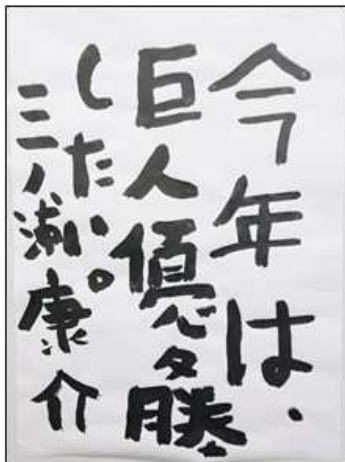 今年は、
巨人優勝
したい。
三ノ瀬康介